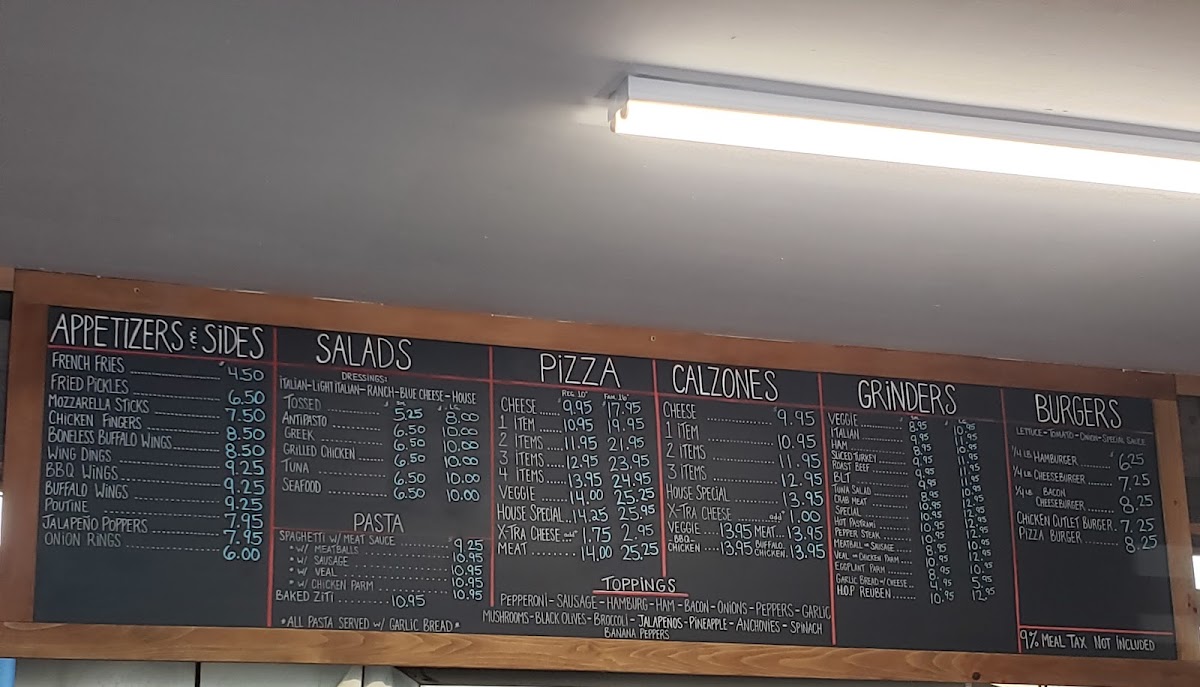 APPETIZERS & SIDES
FRENCH FRIES $4.50
FRIED PICKLES 6.50
MOZZARELLA STICKS 7.50
CHICKEN FINGERS 8.50
BONELESS BUFFALO WINGS 8.50
WING DINGS 9.25
BBQ WINGS 9.25
BUFFALO WINGS 9.25
POUTINE 7.95
JALAPEÑO POPPERS 7.95
ONION RINGS 6.00
SALADS
DRESSINGS:
ITALIAN-LIGHT ITALIAN-RANCH-BLUE CHEESE-HOUSE
SM. LG.
TOSSED $5.25 $8.00
ANTIPASTO 6.50 10.00
GREEK 6.50 10.00
GRILLED CHICKEN 6.50 10.00
TUNA 6.50 10.00
SEAFOOD 6.50 10.00
PASTA
SPAGHETTI W/ MEAT SAUCE $9.25
• W/ MEATBALLS 10.95
• W/ SAUSAGE 10.95
• W/ VEAL 10.95
• W/ CHICKEN PARM 10.95
BAKED ZITI 10.95
*ALL PASTA SERVED W/ GARLIC BREAD*
PIZZA
REG. 10" FAM. 16"
CHEESE $9.95 $17.95
1 ITEM 10.95 19.95
2 ITEMS 11.95 21.95
3 ITEMS 12.95 23.95
4 ITEMS 13.95 24.95
VEGGIE 14.00 25.25
HOUSE SPECIAL 14.25 25.95
X-TRA CHEESE add 1.75 2.95
MEAT 14.00 25.25
CALZONES
CHEESE $9.95
1 ITEM 10.95
2 ITEMS 11.95
3 ITEMS 12.95
HOUSE SPECIAL 13.95
X-TRA CHEESE add 1.00
VEGGIE 13.95 MEAT 13.95
BBQ CHICKEN 13.95 BUFFALO CHICKEN 13.95
TOPPINGS
PEPPERONI-SAUSAGE-HAMBURG-HAM-BACON-ONIONS-PEPPERS-GARLIC
MUSHROOMS-BLACK OLIVES-BROCCOLI-JALAPENOS-PINEAPPLE-ANCHOVIES-SPINACH
BANANA PEPPERS
GRINDERS
SM. LG.
VEGGIE 8.95 10.95
ITALIAN 9.95 11.95
HAM 8.95 10.95
SLICED TURKEY 9.95 11.95
ROAST BEEF
BLT
TUNA SALAD
CRAB MEAT
SPECIAL
HOT PASTRAMI
PEPPER STEAK 10.95
MEATBALL OR SAUSAGE 8.95 10.95
VEAL OR CHICKEN PARM 10.95 12.95
EGGPLANT PARM 8.95 10.95
GARLIC BREAD W/ CHEESE 4.95 5.95
H.O.P REUBEN 10.95 12.95
BURGERS
LETTUCE-TOMATO-ONION-SPECIAL SAUCE
1/4 LB HAMBURGER $6.25
1/4 LB CHEESEBURGER 7.25
1/4 LB BACON CHEESEBURGER 8.25
CHICKEN CUTLET BURGER 7.25
PIZZA BURGER 8.25
9% MEAL TAX NOT INCLUDED